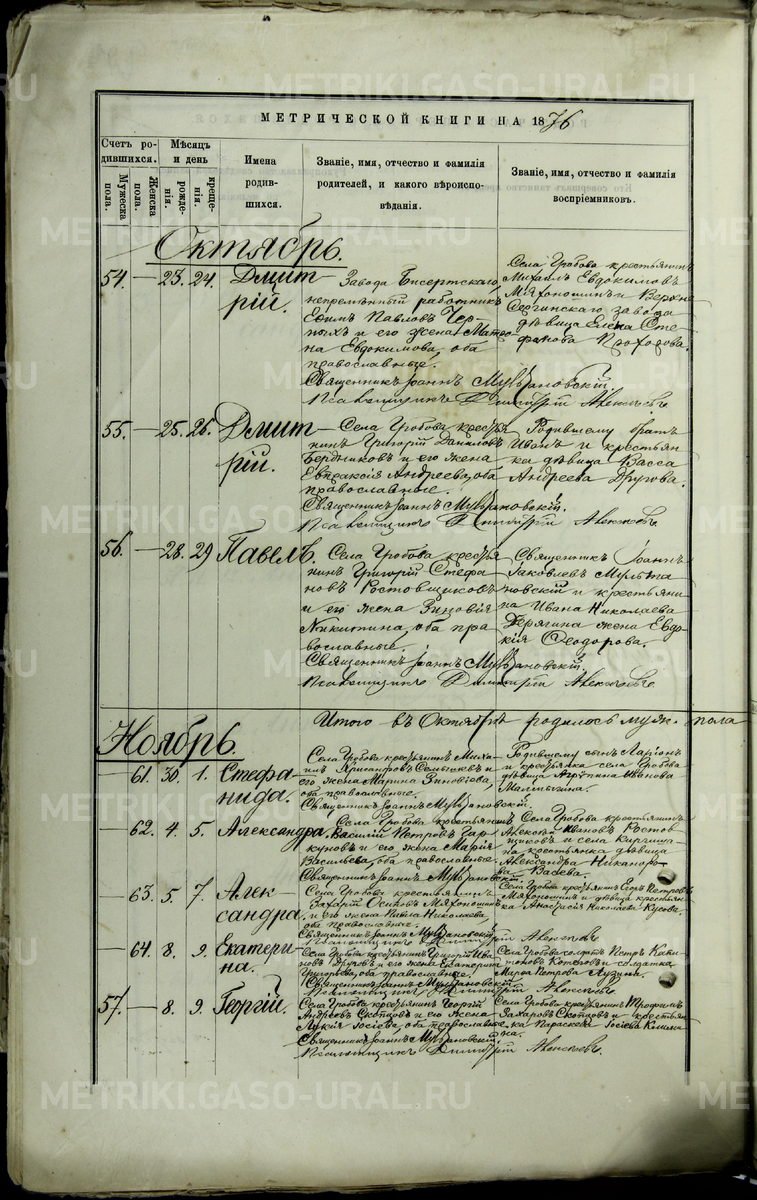 МЕТРИЧЕСКОЙ КНИГИ НА 1876
Счетъ родившихся.
Мужеска пола.
Женска пола.
Мѣсяцъ и день
рожденія.
крещенія.
Имена родившихся.
Званіе, имя, отчество и фамилія родителей, и какого вѣроисповѣданія.
Званіе, имя, отчество и фамилія воспріемниковъ.
Октябрь.
54. — 23. 24. Дмитрій.
Завода Бисертскаго,
непремѣнный работникъ
Ефимъ Павловъ Чер-
ныхъ и его жена Матро-
на Евдокимова, оба
православные.
Священникъ Іоаннъ Мультановскій.
Псаломщикъ Димитрій
Села Гробова крестьянинъ
Михаилъ Евдокимовъ
Мяхоношинъ и Верхне
Сергинскаго завода
дѣвица Елена Сте-
фанова Прохорова.
55. — 25. 26. Дмитрій.
Села Гробова кресть-
нинъ Григорій Даниловъ
Бердниковъ и его жена
Евпраксія Андреева, оба
православные.
Священникъ Іоаннъ Мультановскій.
Псаломщикъ Димитрій
Родившему братъ
Иванъ и крестьян-
ка дѣвица Васса
Андреева Другова.
56. — 28. 29 Павелъ.
Села Гробова кресть-
нинъ Григорій Стефа-
новъ Ростовщиковъ
и его жена Зиновія
Никитина, оба пра-
вославные.
Священникъ Іоаннъ Мультановскій.
Псаломщикъ Димитрій
Священникъ Іоаннъ
Іаковлевъ Мульта-
новскій и крестьяни-
на Ивана Николаева
жена Евдо-
кія Ѳеодорова.
Итого въ Октябрѣ родилось муж. пола
Ноябрь.
61. 30. 1. Стефанида.
Села Гробова крестьянинъ Миха-
илъ
его жена Марина Зиновіева,
оба православные.
Священникъ Іоаннъ Мультановскій.
Родившему сынъ Ларіонъ
и крестьянка села Гробова
дѣвица Агрипина Иванова
62. 4. 5. Александра.
Села Гробова крестьянинъ
Василій Петровъ Гор-
куновъ и его жена Марія
Васильева, оба православные.
Священникъ Іоаннъ Мультановскій.
Села Гробова крестьянинъ
Алексѣй Ивановъ Ростов-
щиковъ и села Киргишан-
на крестьянка дѣвица
Александра Никаноро-
ва
63. 5. 7. Александра.
Села Гробова крестьянинъ
Захарій Осиповъ Мяхоношинъ
и его жена Николаева
оба православные.
Священникъ Іоаннъ Мультановскій.
Псаломщикъ Димитрій
Села Гробова крестьянинъ Егоръ Петровъ
Мяхоношинъ и дѣвица крестьян-
ка Анастасія Николаева Кусова.
64. 8. 9. Екатерина.
Села Гробова крестьянинъ Григорій Ива-
новъ Друговъ и его жена Екатерина
Григорьева, оба православные.
Священникъ Іоаннъ Мультановскій.
Псаломщикъ Димитрій
Села Гробова солдатъ Петръ
и солдатка
Марѳа Петрова Лузина.
57. — 8. 9. Георгій.
Села Гробова крестьянинъ Георгій
Андреевъ Скопцовъ и его жена
Лукія Іосіева, оба православные.
Священникъ Іоаннъ Мультановскій.
Псаломщикъ Димитрій
Села Гробова крестьянинъ Трофимъ
Захаровъ Скопцовъ и крестьян-
ка Параскева Іосіева
METRIKI.GASO-URAL.RU